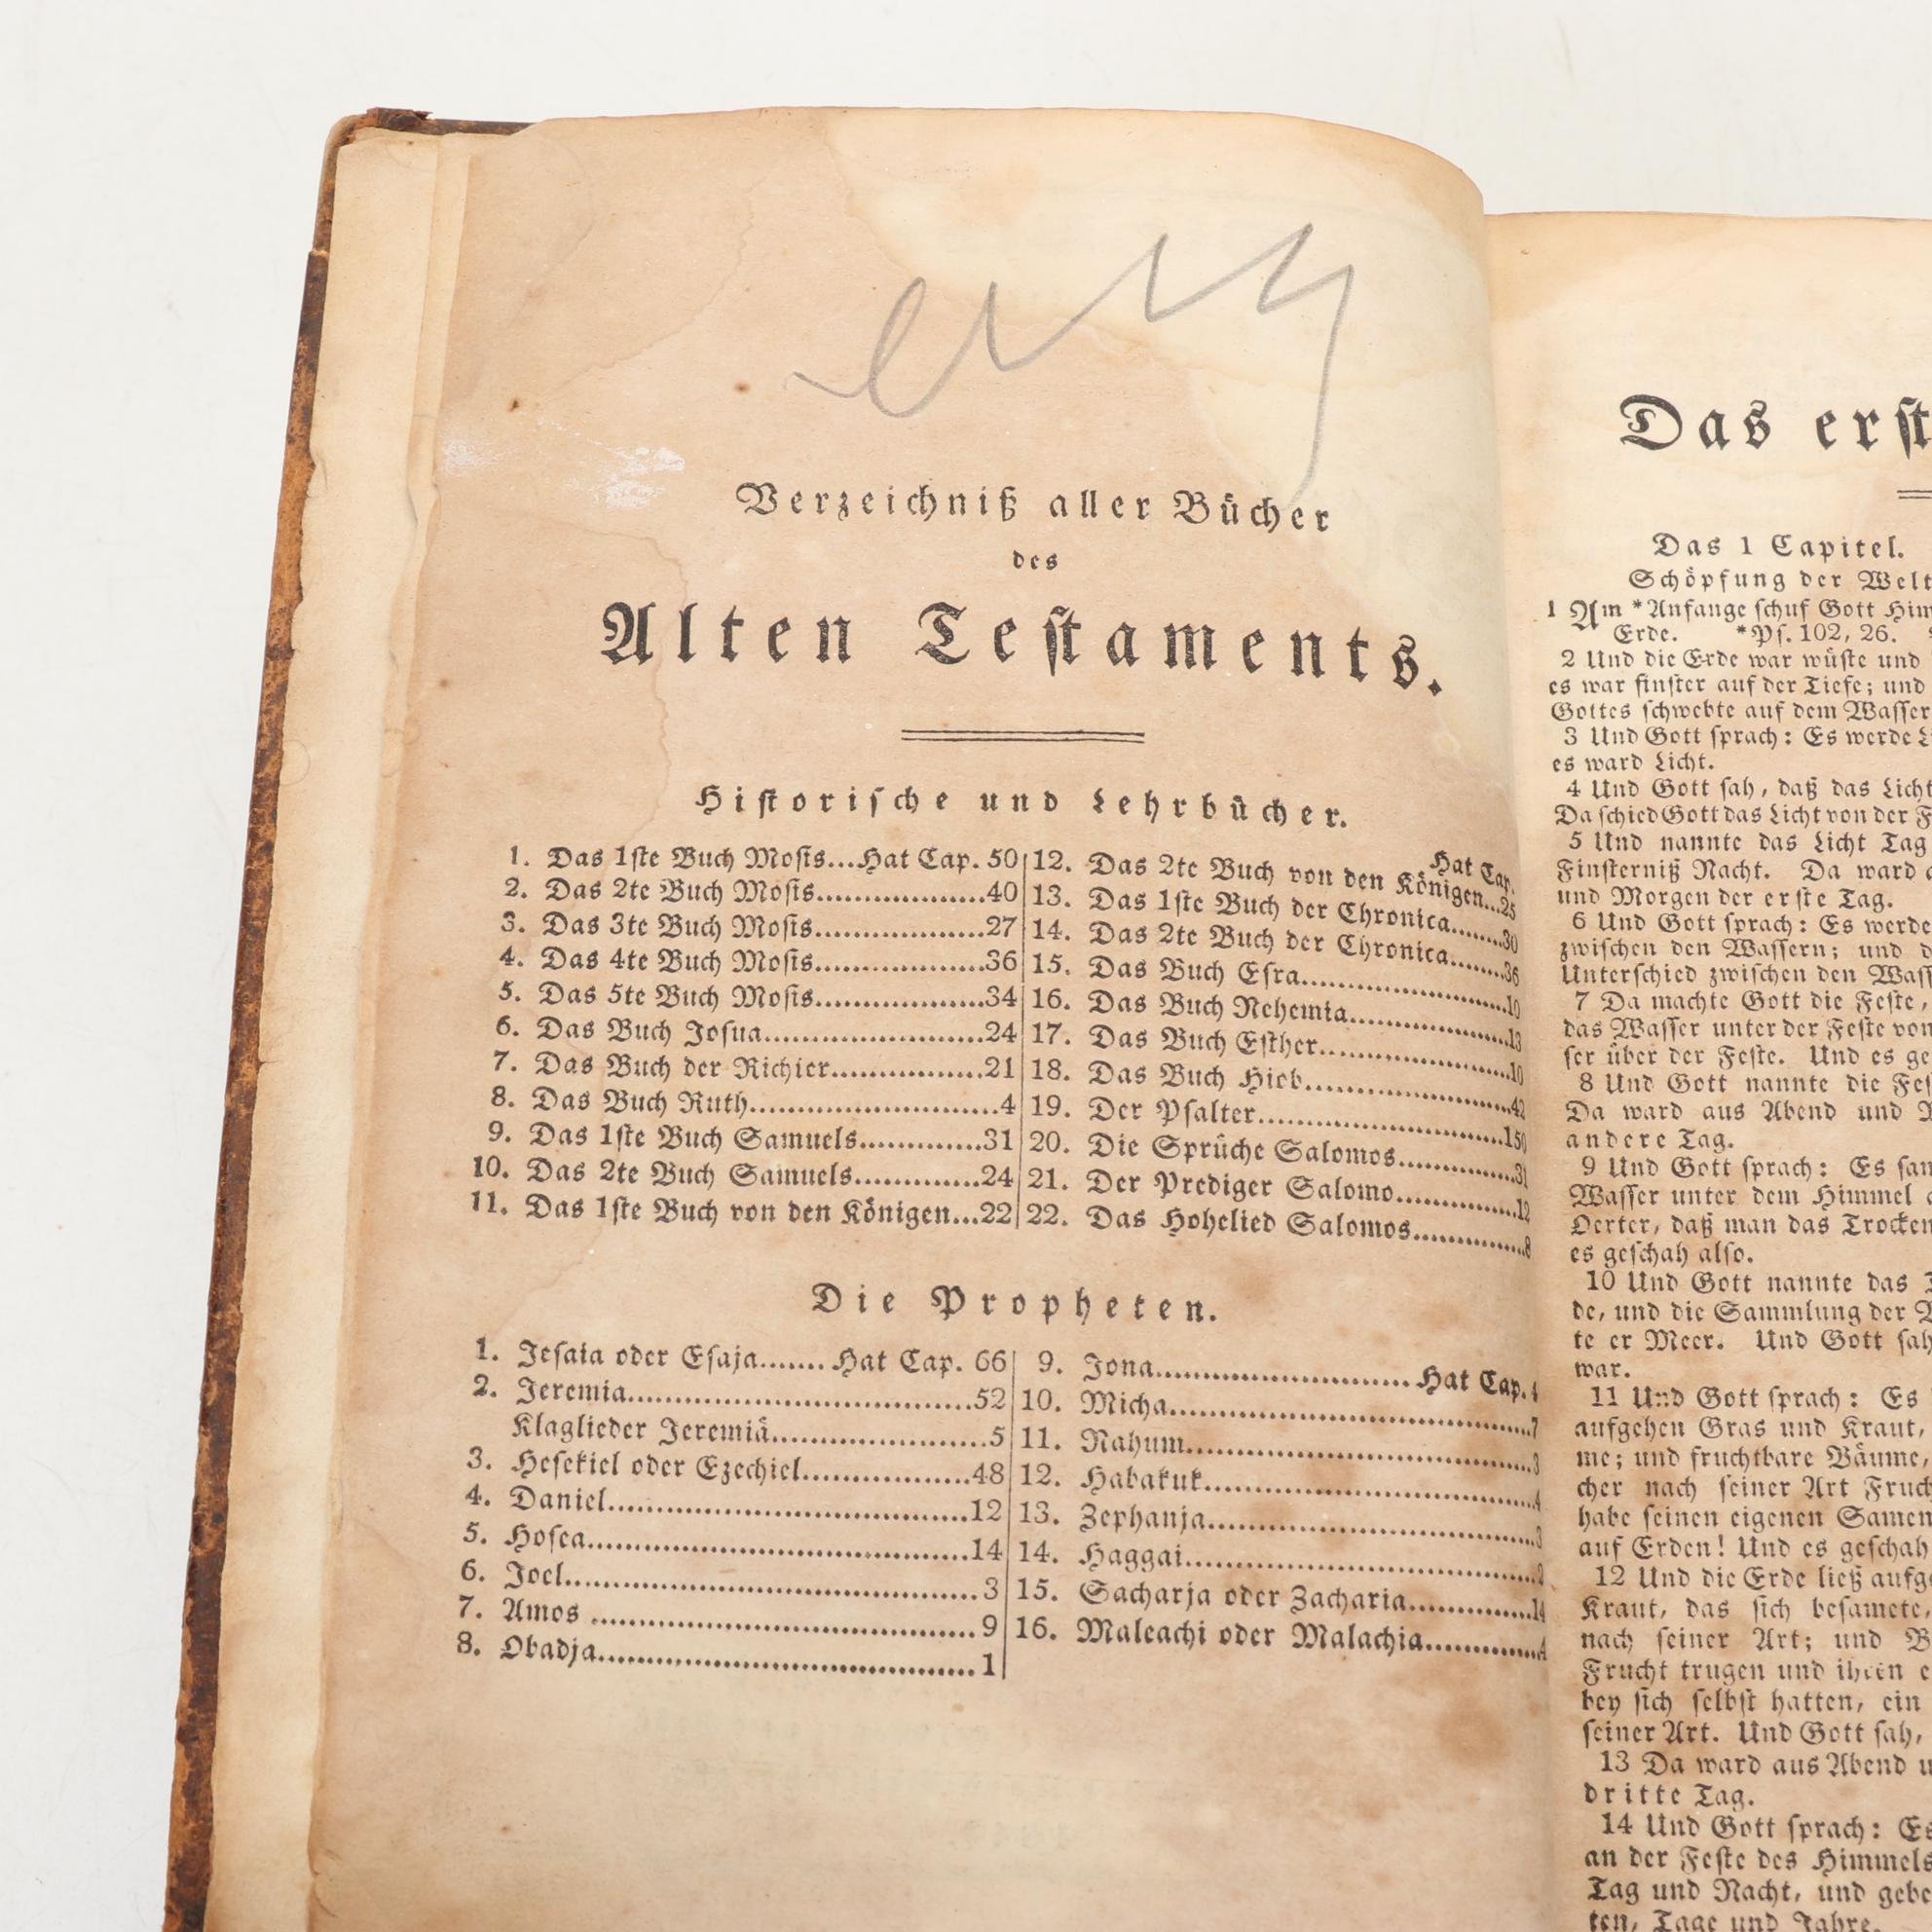 Verzeichniß aller Bücher
des
Alten Teſtaments.
Hiſtoriſche und Lehrbücher.
1. Das 1ſte Buch Moſis...Hat Cap. 50
2. Das 2te Buch Moſis...................40
3. Das 3te Buch Moſis...................27
4. Das 4te Buch Moſis...................36
5. Das 5te Buch Moſis...................34
6. Das Buch Joſua.........................24
7. Das Buch der Richter.................21
8. Das Buch Ruth...........................4
9. Das 1ſte Buch Samuels..............31
10. Das 2te Buch Samuels..............24
11. Das 1ſte Buch von den Königen...22
Hat Cap.
12. Das 2te Buch von den Königen...25
13. Das 1ſte Buch der Chronica........30
14. Das 2te Buch der Chronica........36
15. Das Buch Eſra..........................10
16. Das Buch Nehemia....................13
17. Das Buch Eſther........................10
18. Das Buch Hiob..........................42
19. Der Pſalter..............................150
20. Die Sprüche Salomos................31
21. Der Prediger Salomo.................12
22. Das Hohelied Salomos................8
Die Propheten.
1. Jeſaia oder Eſaja....... Hat Cap. 66
2. Jeremia......................................52
Klaglieder Jeremiä.........................5
3. Heſekiel oder Ezechiel..................48
4. Daniel........................................12
5. Hoſea.........................................14
6. Joel.............................................3
7. Amos ..........................................9
8. Obadja.........................................1
9. Jona............................Hat Cap. 4
10. Micha.........................................7
11. Nahum.......................................3
12. Habakuk.....................................4
13. Zephanja....................................3
14. Haggai.......................................2
15. Sacharja oder Zacharia..............14
16. Maleachi oder Malachia..............4
Das erſt
Das 1 Capitel.
Schöpfung der Welt
1 Am *Anfange ſchuf Gott Him
Erde. *Pſ. 102, 26.
2 Und die Erde war wüſte und
es war finſter auf der Tiefe; und
Gottes ſchwebte auf dem Waſſer
3 Und Gott ſprach: Es werde Li
es ward Licht.
4 Und Gott ſah, daß das Licht
Da ſchied Gott das Licht von der F
5 Und nannte das Licht Tag
Finſterniß Nacht. Da ward a
und Morgen der erſte Tag.
6 Und Gott ſprach: Es werde
zwiſchen den Waſſern; und d
Unterſchied zwiſchen den Waſſ
7 Da machte Gott die Feſte,
das Waſſer unter der Feſte von
ſer über der Feſte. Und es ge
8 Und Gott nannte die Feſ
Da ward aus Abend und
andere Tag.
9 Und Gott ſprach: Es ſam
Waſſer unter dem Himmel a
Oerter, daß man das Trocken
es geſchah alſo.
10 Und Gott nannte das
de, und die Sammlung der
te er Meer. Und Gott ſah
war.
11 Und Gott ſprach: Es
aufgehen Gras und Kraut,
me; und fruchtbare Bäume,
cher nach ſeiner Art Fruch
habe ſeinen eigenen Samen
auf Erden! Und es geſchah
12 Und die Erde ließ aufge
Kraut, das ſich beſamete,
nach ſeiner Art; und B
Frucht trugen und ihren e
bey ſich ſelbſt hatten, ein
ſeiner Art. Und Gott ſah,
13 Da ward aus Abend u
dritte Tag.
14 Und Gott ſprach: Es
an der Feſte des Himmels
Tag und Nacht, und gebe
ten, Tage und Jahre.